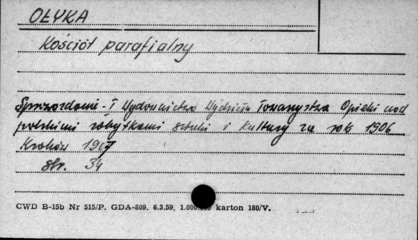 OŁYKA
Kościół parafialny
Sprawozdanie - I Wydawnictwo Wydziału Towarzystwa Opieki nad
polskimi zabytkami sztuki i kultury za rok 1906
Kraków 1907
str. 34
CWD B-15b Nr 515/P. GDA-809. 6.3.59, 1.000.000 karton 180/V.